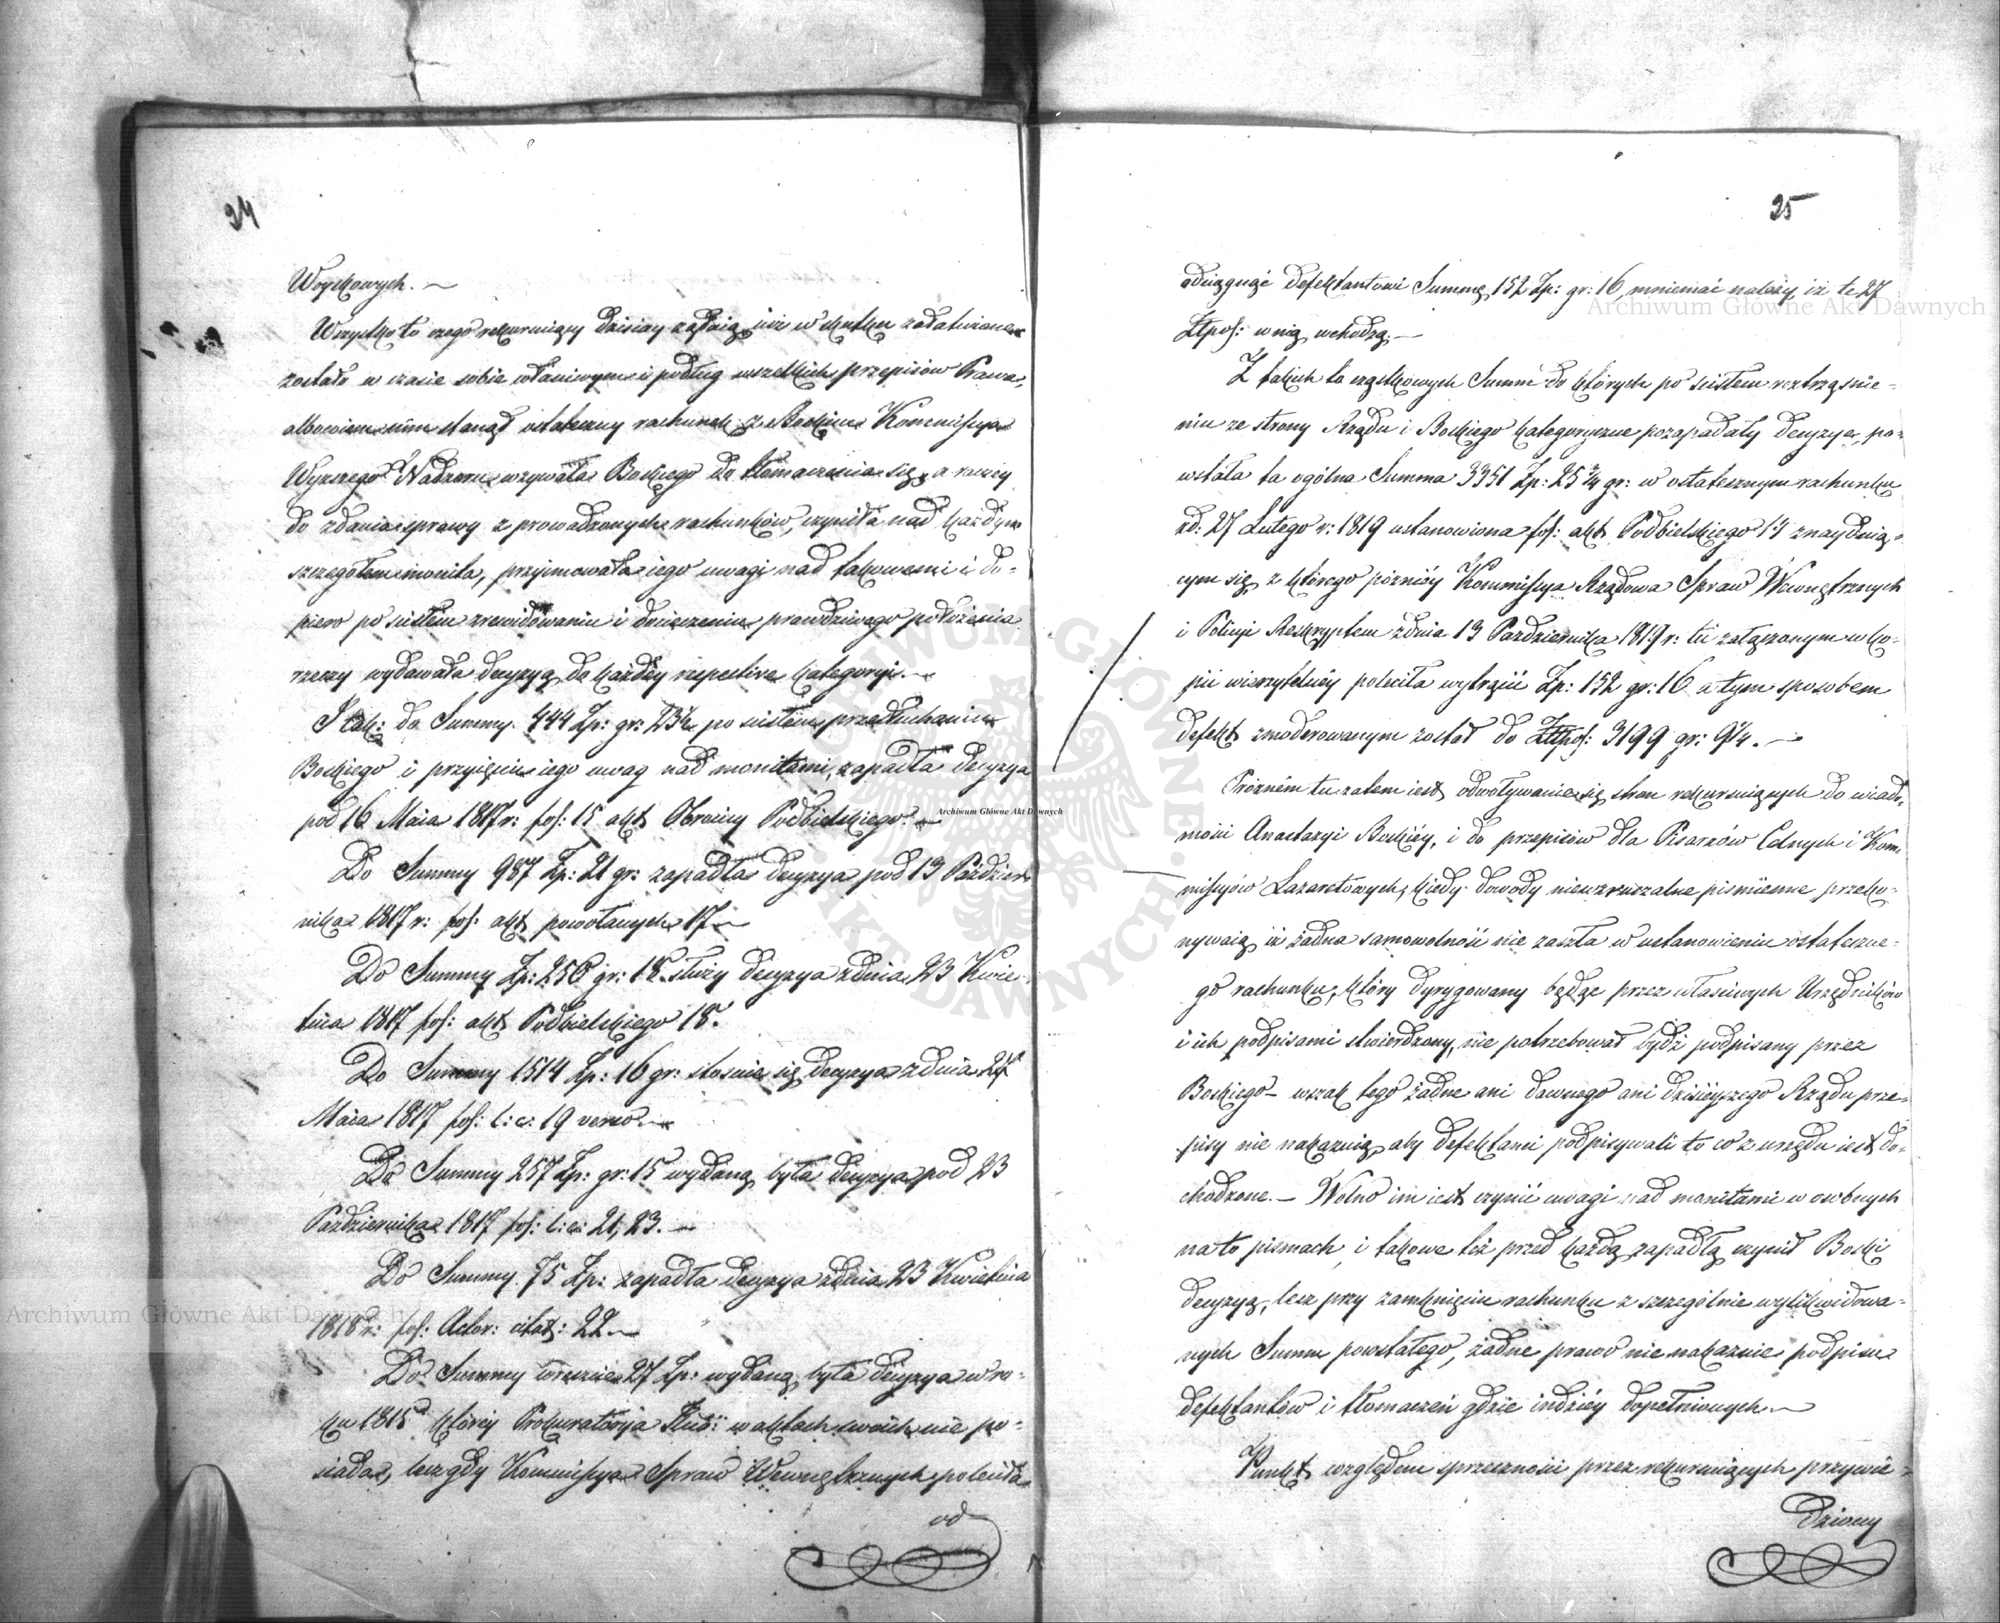 24
Woyskowych. —
Wszystko to czego rekursuiący dzisiay żądaią, iuż w skutku załatwione
zostało w czasie sobie właściwym i podług wszelkich przepisów Prawa,
albowiem nim stanął ostateczny rachunek z Boskim Kommissya
Wyższego Nadzoru wzywała Boskiego do tłomaczenia się, a rzeczy
do zdania sprawy z prowadzonych rachunków, czyniła nad każdym
szczegółem monita, przyjmowała iego uwagi nad takowemi i do-
piero po ścisłem zrewidowaniu i dociecz​eniu prawdziwego położenia
rzeczy wydawała decyzyą do każdéy respective kategoryi. —
I tak: do Summy 444 Zp: gr: 23½ po ścisłem przesłuchaniu
Boskiego i przyięciu iego uwag nad monitami, zapadła decyzya
pod 16 Maia 1817 r: fos: 15 akt Obrońcy Podbielskiego. —
Do Summy 987 Zp: 21 gr: zapadła decyzya pod 13 Paździer-
nika 1817 r: fos: akt powołanych 17. —
Do Summy Zp: 256 gr: 18 służy decyzya z dnia 23 Kwie-
tnia 1817 fos: akt Podbielskiego 18.
Do Summy 1514 Zp: 16 gr: stosuie się decyzya z dnia 24
Maia 1817 fos: l: c: 19 verso. —
Do Summy 257 Zp: gr: 15 wydaną była decyzya pod 23
Października 1817 fos: l: c: 21, 23. —
Do Summy 75 Zp: zapadła decyzya z dnia 23 Kwietnia
1818 r: fos: Actor: citat: 22. —
Do Summy 27 Zp: wydaną była decyzya w ro-
ku 1815 któréy Prokuratorya w aktach swoich nie po-
siada, lecz gdy Kommissya Spraw Wewnętrznych poleciła
od
25
odciągnąć defektantowi Summę 152 Zp: gr: 16, mniemać należy iż te 27
Złpol: w nią wchodzą. —
Z takich to cząstkowych Summ do których po ścisłem roztrząśnie-
niu ze strony Rządu i Boskiego kategoryczne pozapadały decyzye, po-
wstała ta ogólna Summa 3351 Zp: 25¾ gr: w ostatecznym rachunku
zd: 27 Lutego r: 1819 ustanowiona fos: akt Podbielskiego 14 znayduią-
cym się, z którego późniéy Kommissya Rządowa Spraw Wewnętrznych
i Policyi Reskryptem z dnia 13 Października 1819 r: tu załączonym w ko-
pii wierzytelnéy poleciła wytrącić Zp: 152 gr: 16 a tym sposobem
defekt zmoderowanym został do Złpol: 3199 gr: 9¼. —
Próżném tu zatem iest odwoływanie się stron rekursuiących do wiado-
mości Anastazyi Boskiéy, i do przepisów dla Pisarzów Celnych i Kom-
missyów Lazaretowych, kiedy dowody niewzruszalne piśmienne przeko-
nywaią iż żadna samowolność nie zaszła w ustanowieniu ostateczne-
go rachunku, który dyrygowany będąc przez właściwych Urzędników
i ich podpisami stwierdzony, nie potrzebował bydź podpisany przez
Boskiego — wszak tego żadne ani dawnego ani dzisieyszego Rządu prze-
pisy nie nakazuią, aby defektanci podpisywali to co z urzędu iest do-
chodzone. — Wolno im iest czynić uwagi nad monitami w osobnych
na to pismach, i takowe też przed każdą zapadłą czynił Boski
decyzyą, lecz przy zamknięciu rachunku z szczególnie wylikwidowa-
nych Summ powstałego, żadne prawo nie nakazuie podpisu
defektantów i tłomaczeń gdzie indziéy dopełnionych. —
Punkt względem sprzeczności przez rekursuiących przywie-
dziony
Archiwum Główne Akt Dawnych
Archiwum Główne Akt Dawnych
Archiwum Główne Akt Dawnych
ARCHIWUM GŁÓWNE
AKT DAWNYCH